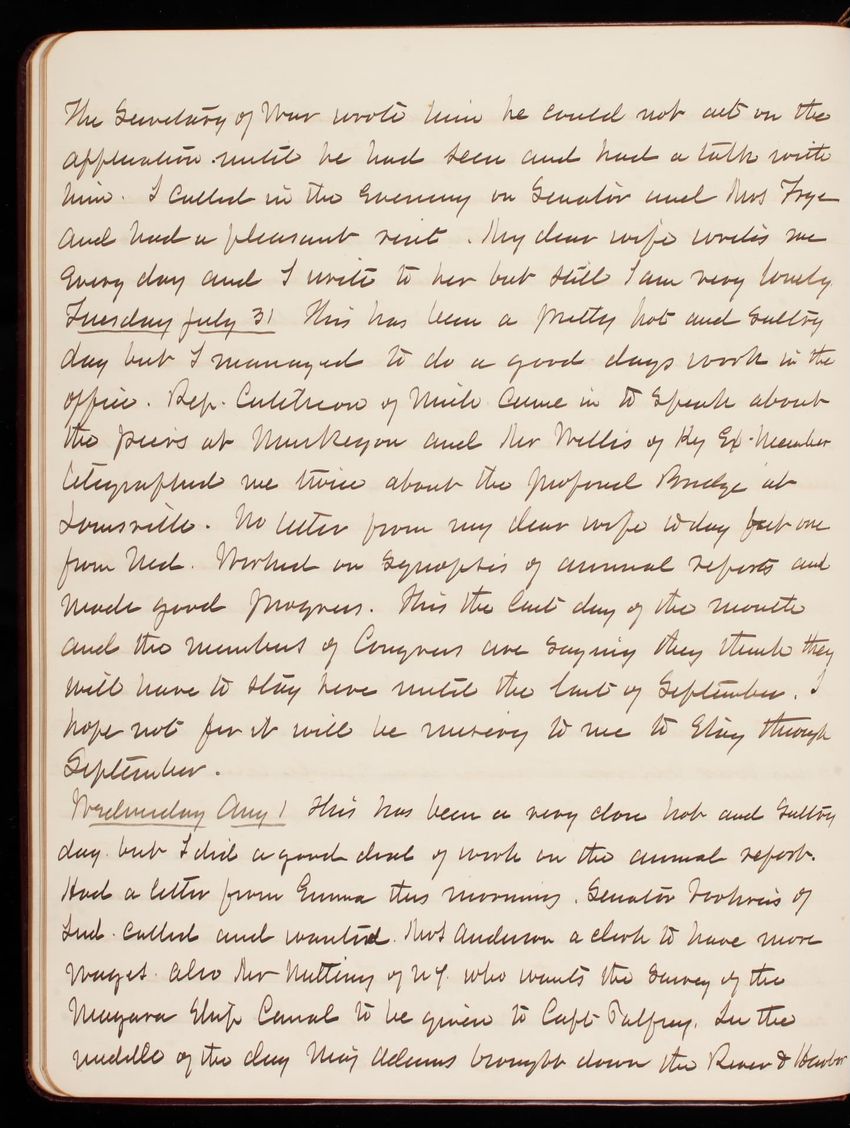 The Secretary of War wrote him he could not act on the
application until he had seen and had a talk with
him. I called in the evening on Senator and Mrs Frye
and had a pleasant visit. My dear wife writes me
every day and I write to her but still I am very lonely
Tuesday July 31 This has been a pretty hot and sultry
day but I managed to do a good days work in the
office. Rep. Cutcheon of Mich came in to speak about
the piers at Muskegon and Mr Willis of Ky Ex-Member
telegraphed me twice about the proposed Bridge at
Louisville. No letter from my dear wife today but one
from Ned. Worked on synopsis of annual reports and
made good progress. This the last day of the month
and the members of Congress are saying they think they
will have to stay here until the last of September. I
hope not for it will be misery to me to stay through
September.
Wednesday Aug 1 This has been a very close hot and sultry
day but I did a good deal of work on the annual report.
Had a letter from Emma this morning. Senator Voohreis of
Ind. called and wanted Mrs Anderson a clerk to have more
wages. also Mr Nutting of N.Y. who wants the survey of the
Niagara Ship Canal to be given to Capt Palfrey. In the
middle of the day Maj Adams brought down the River & Harbor